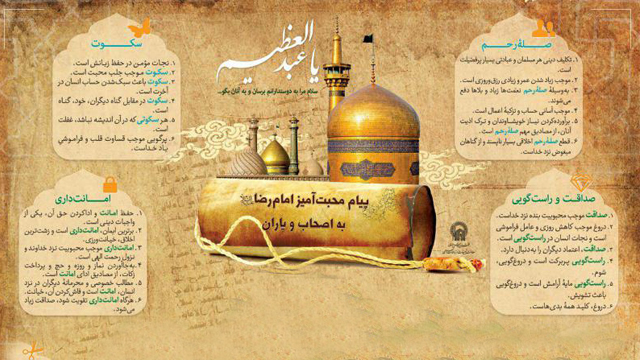 یا عبدالعظیم
سلام مرا به دوستدارانم برسان و به آنان بگو...
صلهٔ‌رحم
۱. تکلیف دینی هر مسلمان و عبادتی بسیار پرفضیلت
است.
۲. موجب زیاد شدن عمر و زیادی رزق‌وروزی است.
۳. به‌وسیلهٔ صلهٔ‌رحم نعمت‌ها زیاد و بلاها دفع
می‌شوند.
۴. موجب آسانی حساب و تزکیهٔ اعمال است.
۵. برآورده‌کردن نیاز خویشاوندان و ترک اذیت
آنان، از مصادیق مهم صلهٔ‌رحم است.
۶. قطع صلهٔ‌رحم اخلاقی بسیار ناپسند و از گناهان
مبغوض نزد خداست.
سکوت
۱. نجات مؤمن در حفظ زبانش است.
۲. سکوت موجب جلب محبت است.
۳. سکوت باعث سبک‌شدن حساب انسان در
آخرت است.
۴. سکوت در مقابل گناه دیگران، خود، گناه
است.
۵. هر سکوتی که در آن اندیشه نباشد، غفلت
است.
۶. پرگویی موجب قساوت قلب و فراموشی
یاد خداست.
پیام محبت‌آمیز امام رضا
به اصحاب و یاران
صداقت و راست‌گویی
۱. صداقت موجب محبوبیت بنده نزد خداست.
۲. دروغ موجب کاهش روزی و عامل فراموشی
است و نجات انسان در راست‌گویی است.
۳. صداقت، اعتماد دیگران را به‌دنبال دارد.
۴. راست‌گویی پربرکت است و دروغ‌گویی،
شوم.
۵. راست‌گویی مایهٔ آرامش است و دروغ‌گویی
باعث تشویش.
۶. دروغ، کلید همهٔ بدی‌هاست.
امانت‌داری
۱. حفظ امانت و اداکردن حق آن، یکی از
واجبات دینی است.
۲. برترین ایمان، امانت‌داری است و زشت‌ترین
اخلاق، خیانت‌ورزی.
۳. امانت‌داری موجب محبوبیت نزد خداوند و
نزول رحمت الهی است.
۴. به‌جاآوردن نماز و روزه و حج و پرداخت
زکات، از مصادیق ادای امانت است.
۵. مطالب خصوصی و محرمانهٔ دیگران در نزد
انسان، امانت است و فاش‌کردن آن، خیانت.
۶. هرگاه امانت‌داری تقویت شود، صداقت زیاد
می‌شود.